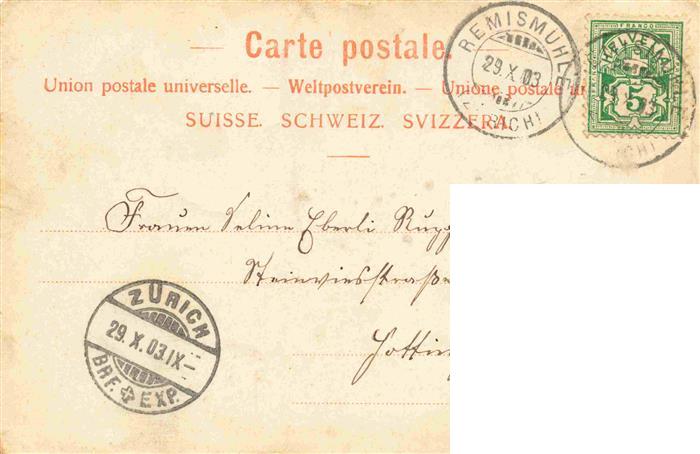 — Carte postale. —
Union postale universelle. — Weltpostverein. — Unione postale
SUISSE. SCHWEIZ. SVIZZERA.
REMISMÜHLE
29.X.03.
(ZÜRICH)
FRANCO
HELVETIA
5
Frauen Seline Eberli
Steinwiesstraße
ZÜRICH
29.X.03.IX–
BRF. EXP.